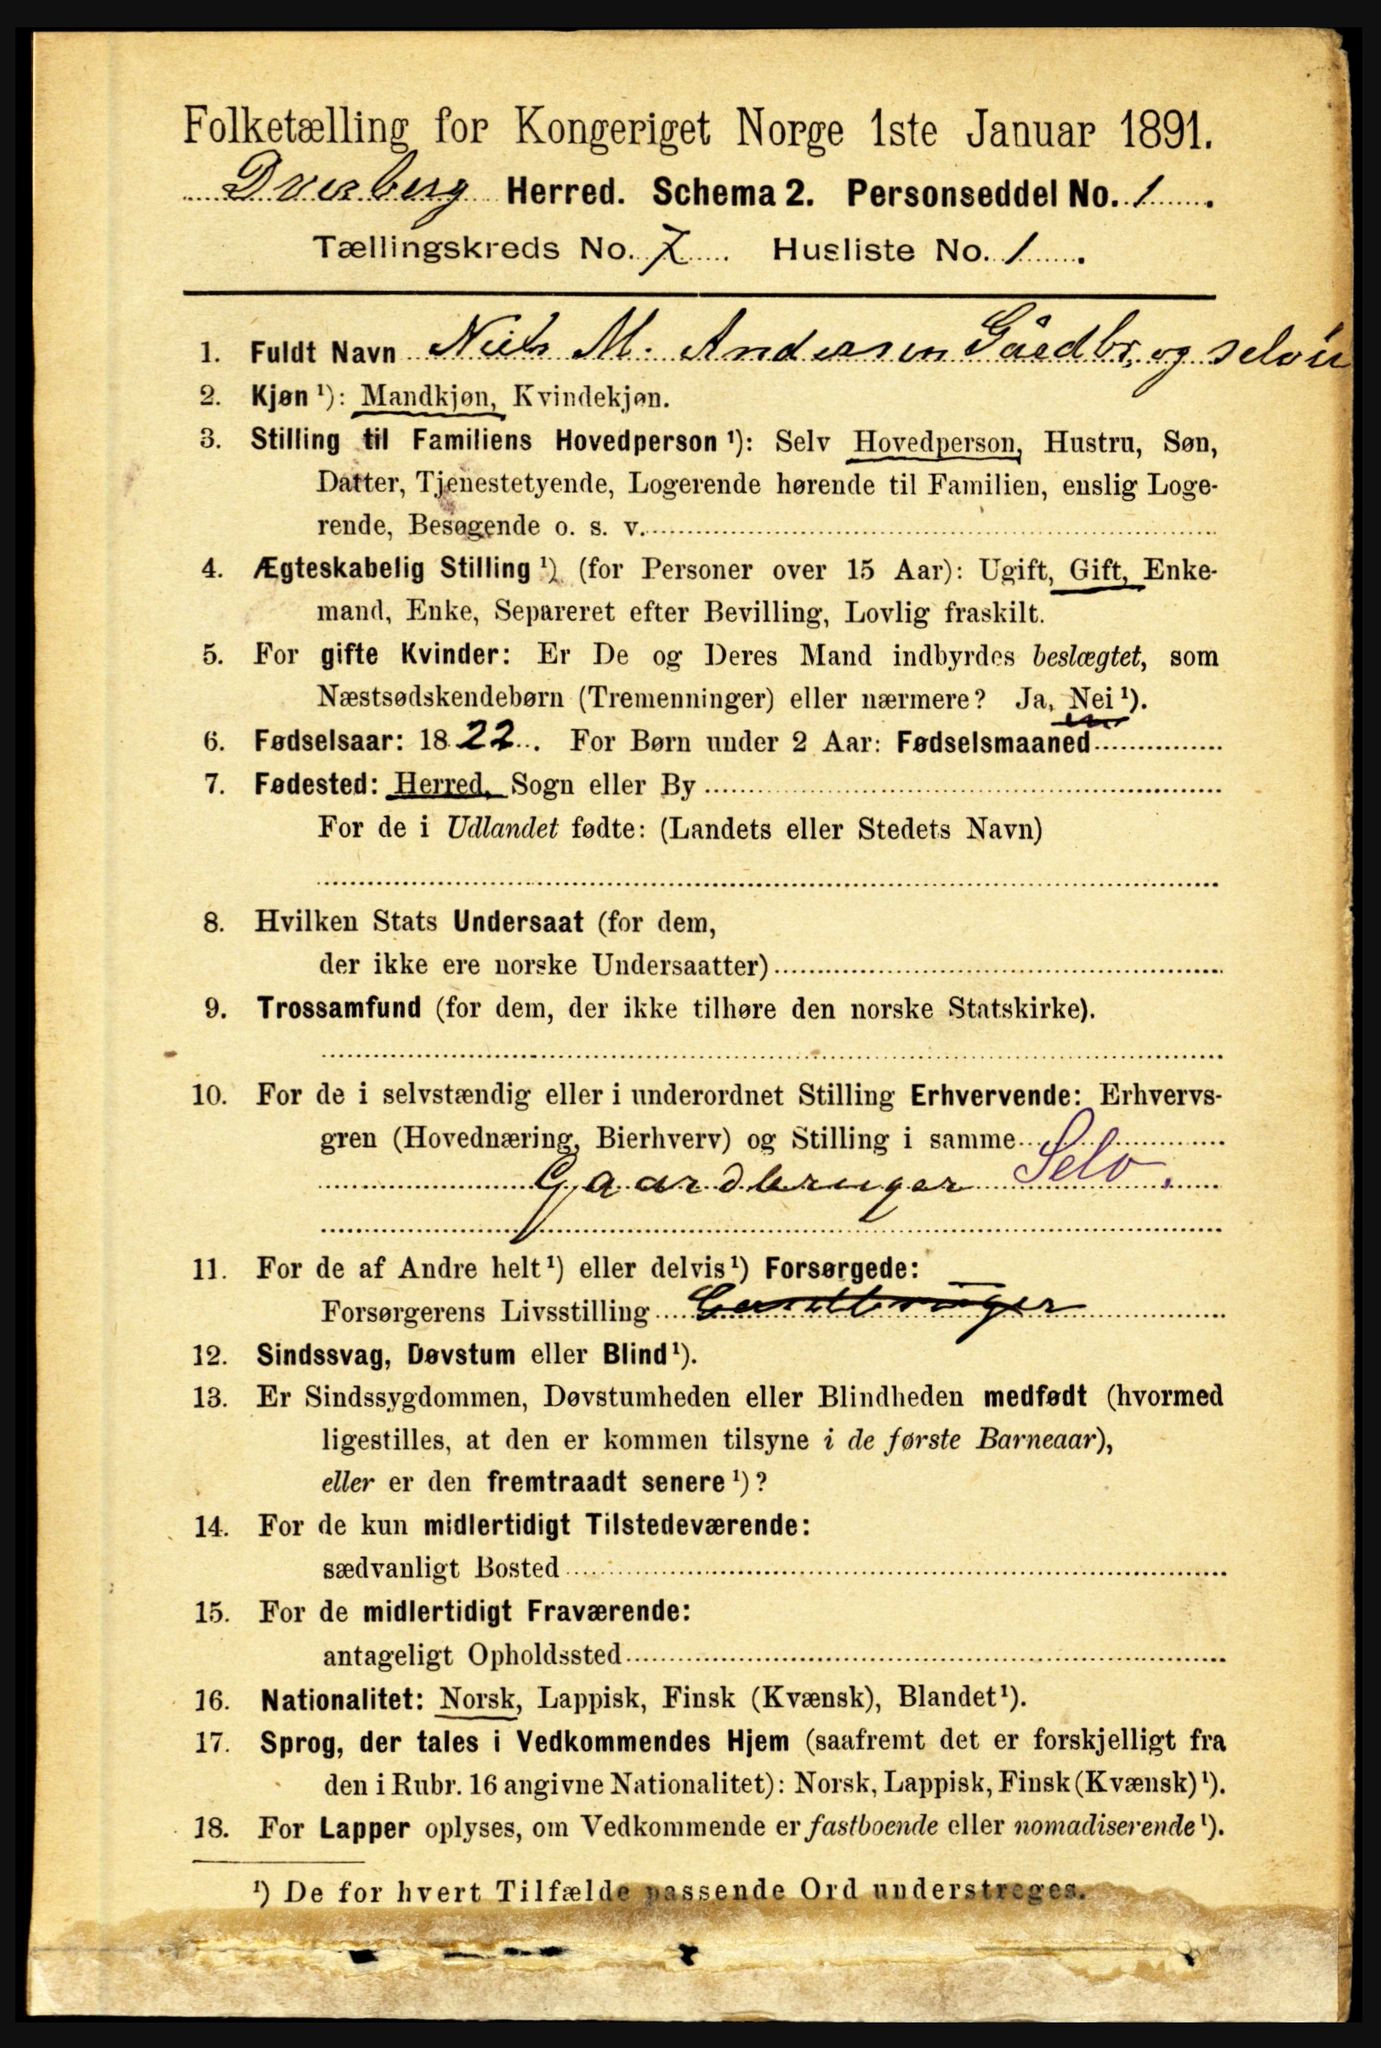 Folketælling for Kongeriget Norge 1ste Januar 1891.
Dverberg Herred. Schema 2. Personseddel No. 1.
Tællingskreds No. 7. Husliste No. 1.
1. Fuldt Navn Niels M. Andersen Gårdbr. og selv
2. Kjøn ¹): Mandkjøn, Kvindekjøn.
3. Stilling til Familiens Hovedperson ¹): Selv Hovedperson, Hustru, Søn,
Datter, Tjenestetyende, Logerende hørende til Familien, enslig Loge-
rende, Besøgende o. s. v.
4. Ægteskabelig Stilling ¹) (for Personer over 15 Aar): Ugift, Gift, Enke-
mand, Enke, Separeret efter Bevilling, Lovlig fraskilt.
5. For gifte Kvinder: Er De og Deres Mand indbyrdes beslægtet, som
Næstsødskendebørn (Tremenninger) eller nærmere? Ja, Nei ¹).
6. Fødselsaar: 1822. For Børn under 2 Aar: Fødselsmaaned
7. Fødested: Herred, Sogn eller By
For de i Udlandet fødte: (Landets eller Stedets Navn)
8. Hvilken Stats Undersaat (for dem,
der ikke ere norske Undersaatter)
9. Trossamfund (for dem, der ikke tilhøre den norske Statskirke).
10. For de i selvstændig eller i underordnet Stilling Erhvervende: Erhvervs-
gren (Hovednæring, Bierhverv) og Stilling i samme
Gaardbruger Selv.
11. For de af Andre helt ¹) eller delvis ¹) Forsørgede:
Forsørgerens Livsstilling Gardbruger
12. Sindssvag, Døvstum eller Blind ¹).
13. Er Sindssygdommen, Døvstumheden eller Blindheden medfødt (hvormed
ligestilles, at den er kommen tilsyne i de første Barneaar),
eller er den fremtraadt senere ¹)?
14. For de kun midlertidigt Tilstedeværende:
sædvanligt Bosted
15. For de midlertidigt Fraværende:
antageligt Opholdssted
16. Nationalitet: Norsk, Lappisk, Finsk (Kvænsk), Blandet ¹).
17. Sprog, der tales i Vedkommendes Hjem (saafremt det er forskjelligt fra
den i Rubr. 16 angivne Nationalitet): Norsk, Lappisk, Finsk (Kvænsk) ¹).
18. For Lapper oplyses, om Vedkommende er fastboende eller nomadiserende ¹).
¹) De for hvert Tilfælde passende Ord understreges.